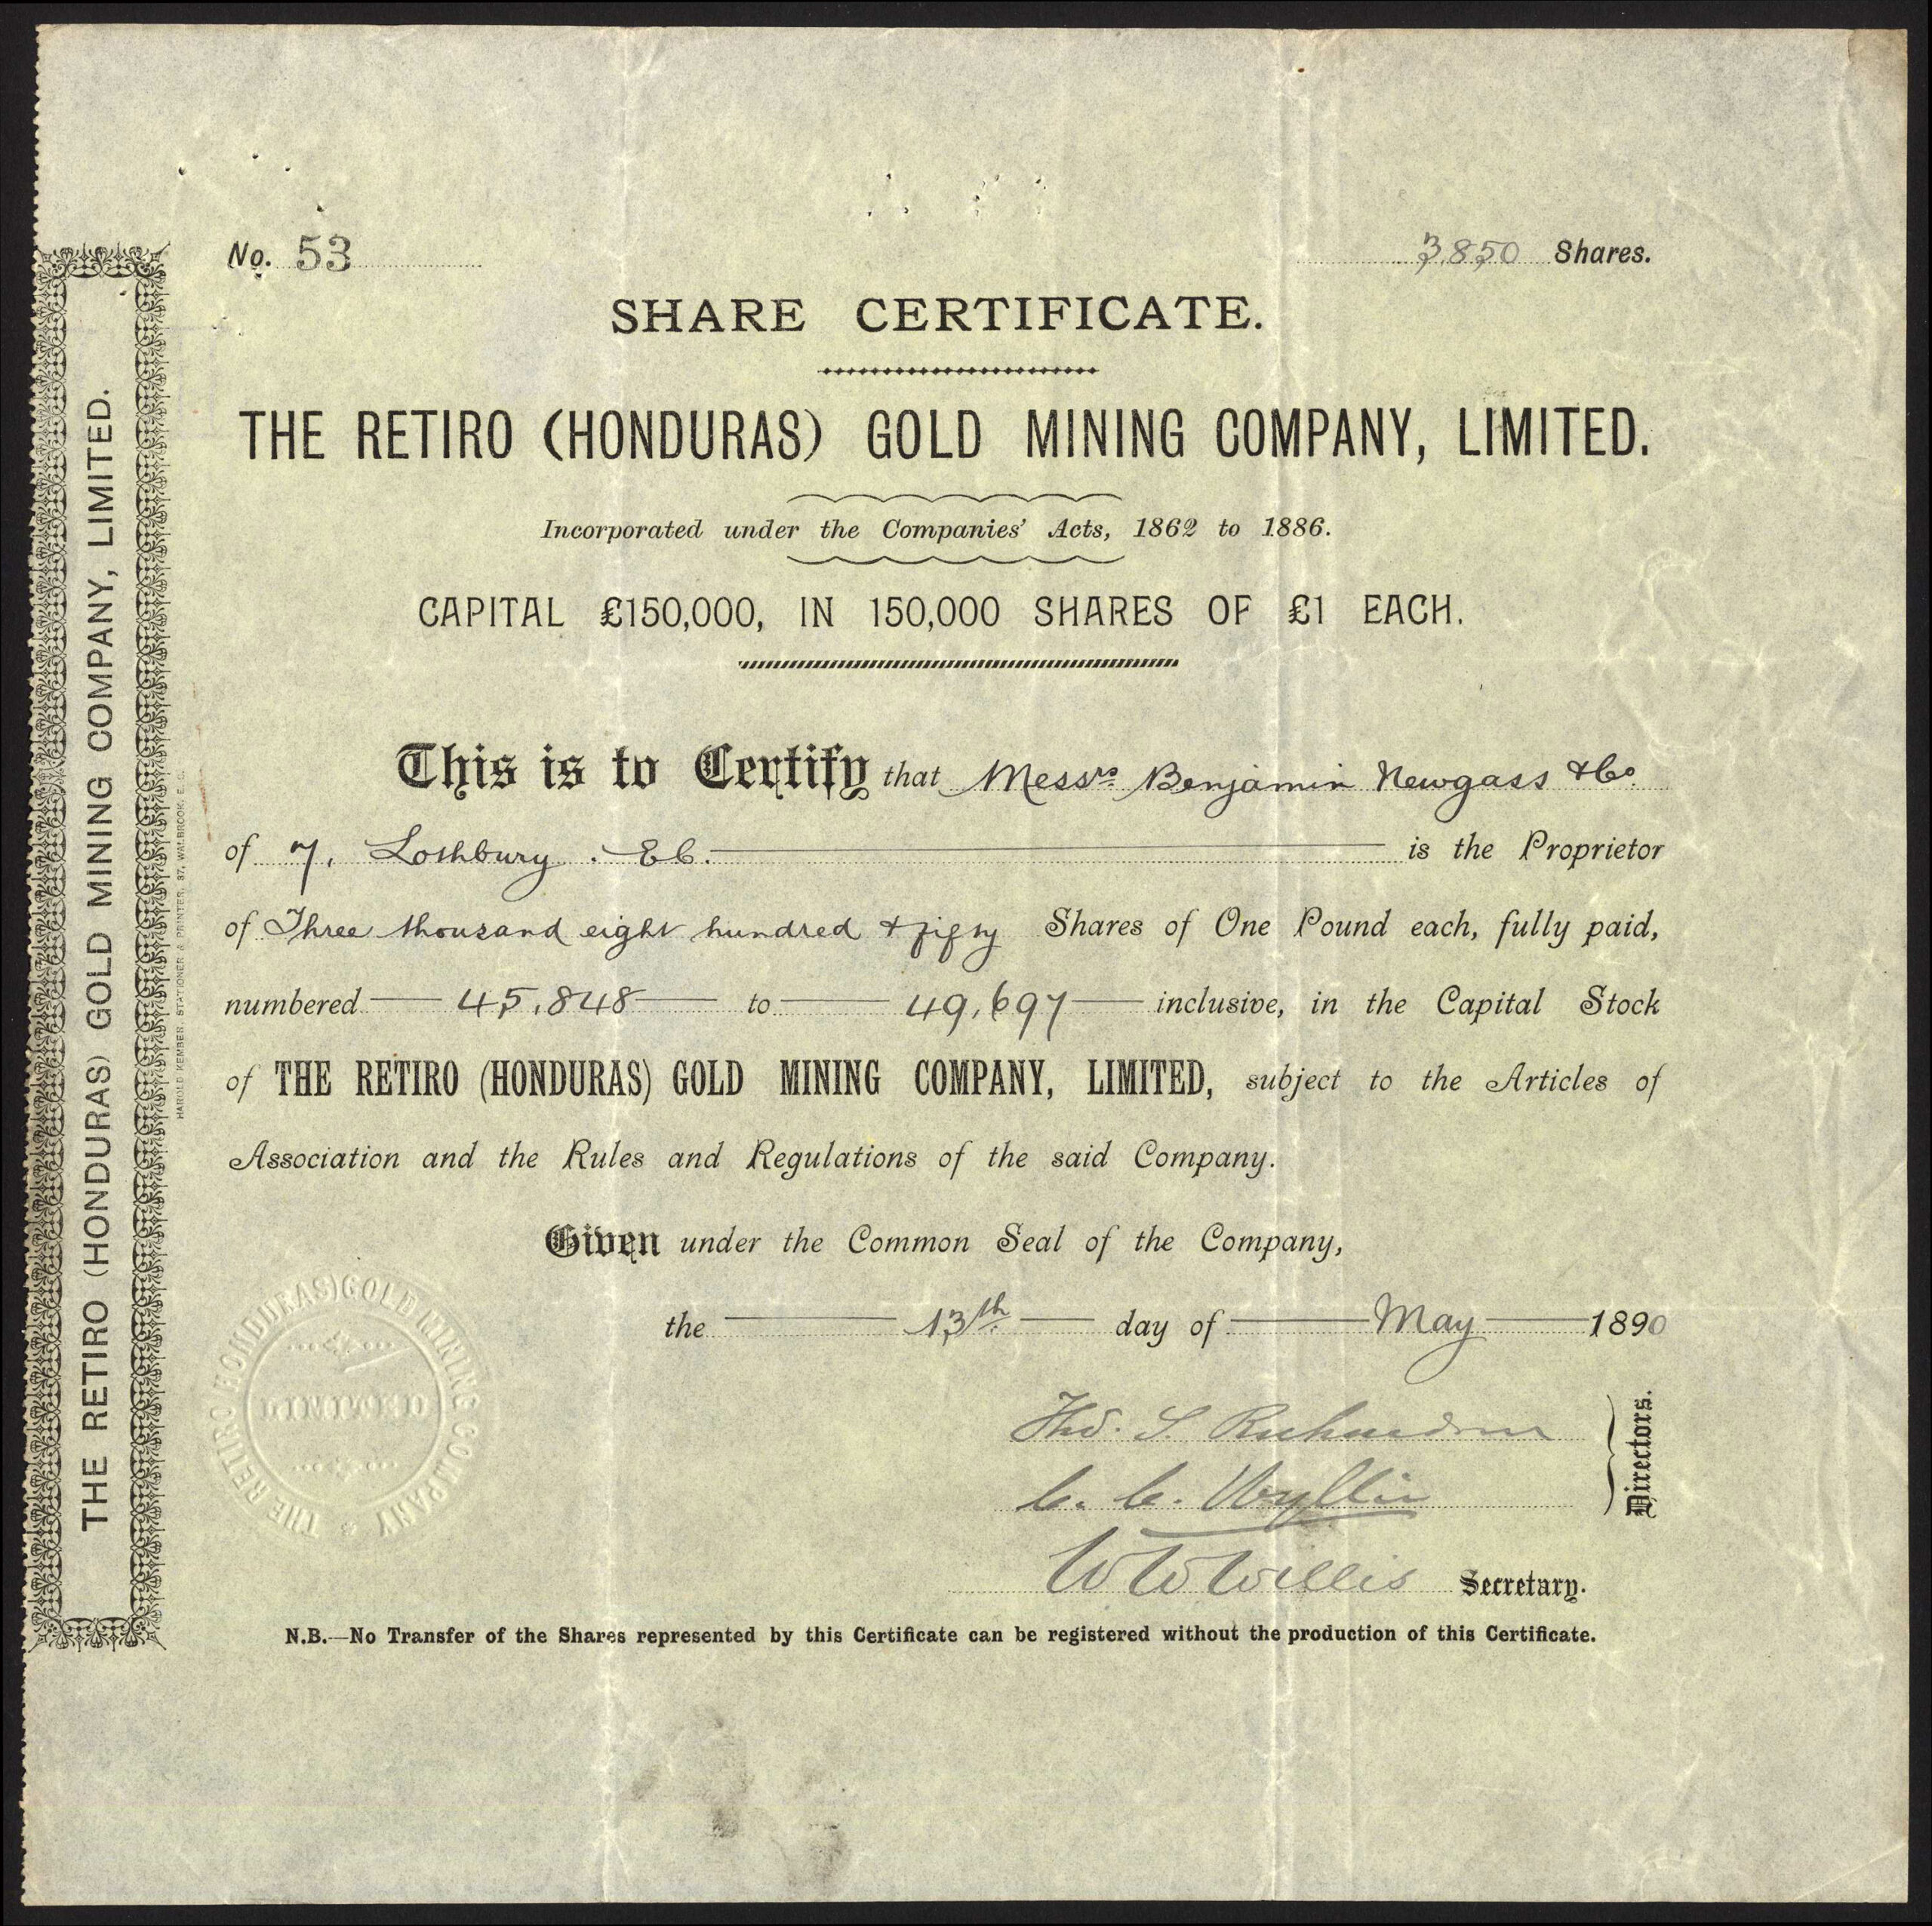 No. 53
3,850 Shares.
SHARE CERTIFICATE.
THE RETIRO (HONDURAS) GOLD MINING COMPANY, LIMITED.
Incorporated under the Companies' Acts, 1862 to 1886.
CAPITAL £150,000, IN 150,000 SHARES OF £1 EACH.
This is to Certify that Messrs. Benjamin Newgass & Co.
of 7, Lothbury. E.C. is the Proprietor
of Three thousand eight hundred & fifty Shares of One Pound each, fully paid,
numbered 45,848 to 49,697 inclusive, in the Capital Stock
of THE RETIRO (HONDURAS) GOLD MINING COMPANY, LIMITED, subject to the Articles of
Association and the Rules and Regulations of the said Company.
Given under the Common Seal of the Company,
the 13th day of May 1890
Tho. S. Richardson
C. C. Wyllie
Directors.
W W Willis Secretary.
N.B.—No Transfer of the Shares represented by this Certificate can be registered without the production of this Certificate.
THE RETIRO (HONDURAS) GOLD MINING COMPANY, LIMITED.
HAROLD KEMBER, STATIONER & PRINTER, 37, WALBROOK, E.C.
THE RETIRO (HONDURAS) GOLD MINING COMPANY
LIMITED